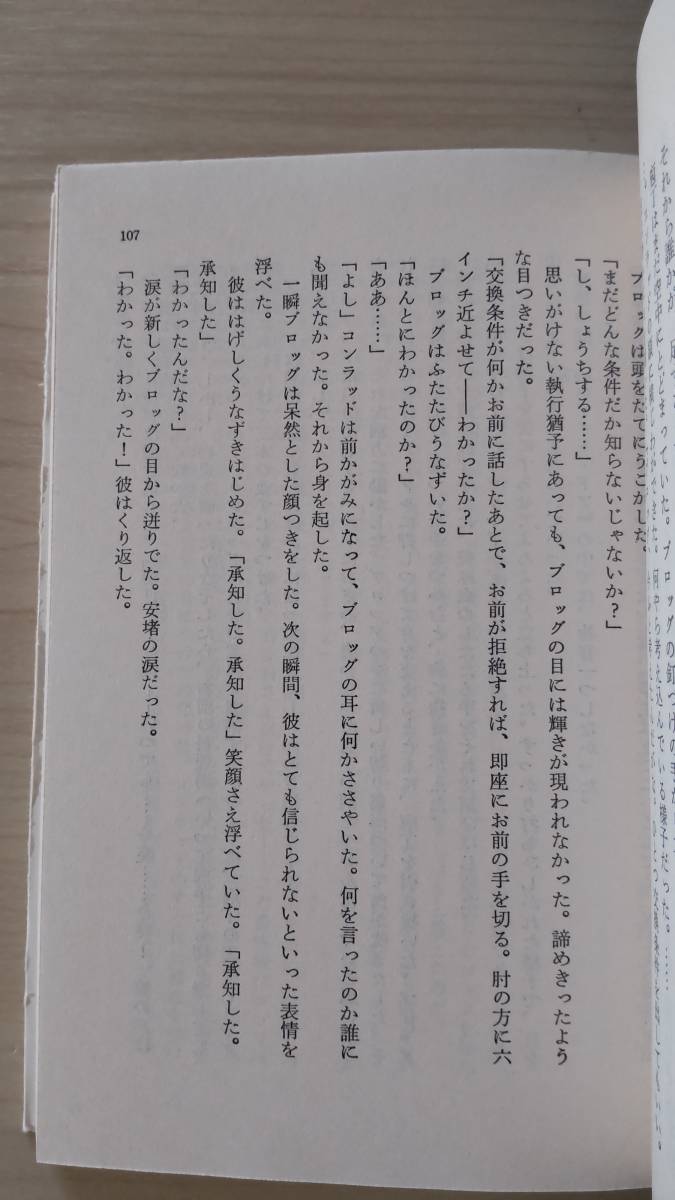 107
ブロッグは頭をたてにうごかした。
「まだどんな条件だか知らないじゃないか？」
「し、しょうちする……」
思いがけない執行猶予にあっても、ブロッグの目には輝きが現われなかった。諦めきったよう
な目つきだった。
「交換条件が何かお前に話したあとで、お前が拒絶すれば、即座にお前の手を切る。肘の方に六
インチ近よせて――わかったか？」
ブロッグはふたたびうなずいた。
「ほんとにわかったのか？」
「ああ……」
「よし」コンラッドは前かがみになって、ブロッグの耳に何かささやいた。何を言ったのか誰に
も聞えなかった。それから身を起した。
一瞬ブロッグは呆然とした顔つきをした。次の瞬間、彼はとても信じられないといった表情を
浮べた。
彼ははげしくうなずきはじめた。「承知した。承知した」笑顔さえ浮べていた。「承知した。
承知した」
「わかったんだな？」
涙が新しくブロッグの目から迸りでた。安堵の涙だった。
「わかった。わかった！」彼はくり返した。